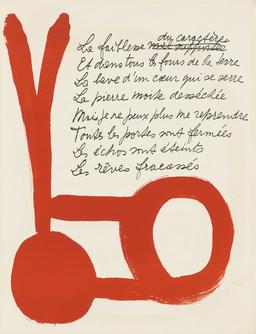 La faiblesse du caractère
Et dans tous les fours de la terre
La lave d'un cœur qui se serre
La pierre moite desséchée
Mais je ne peux plus me reprendre
Toutes les portes sont fermées
Les échos sont éteints
Les rêves fracassés